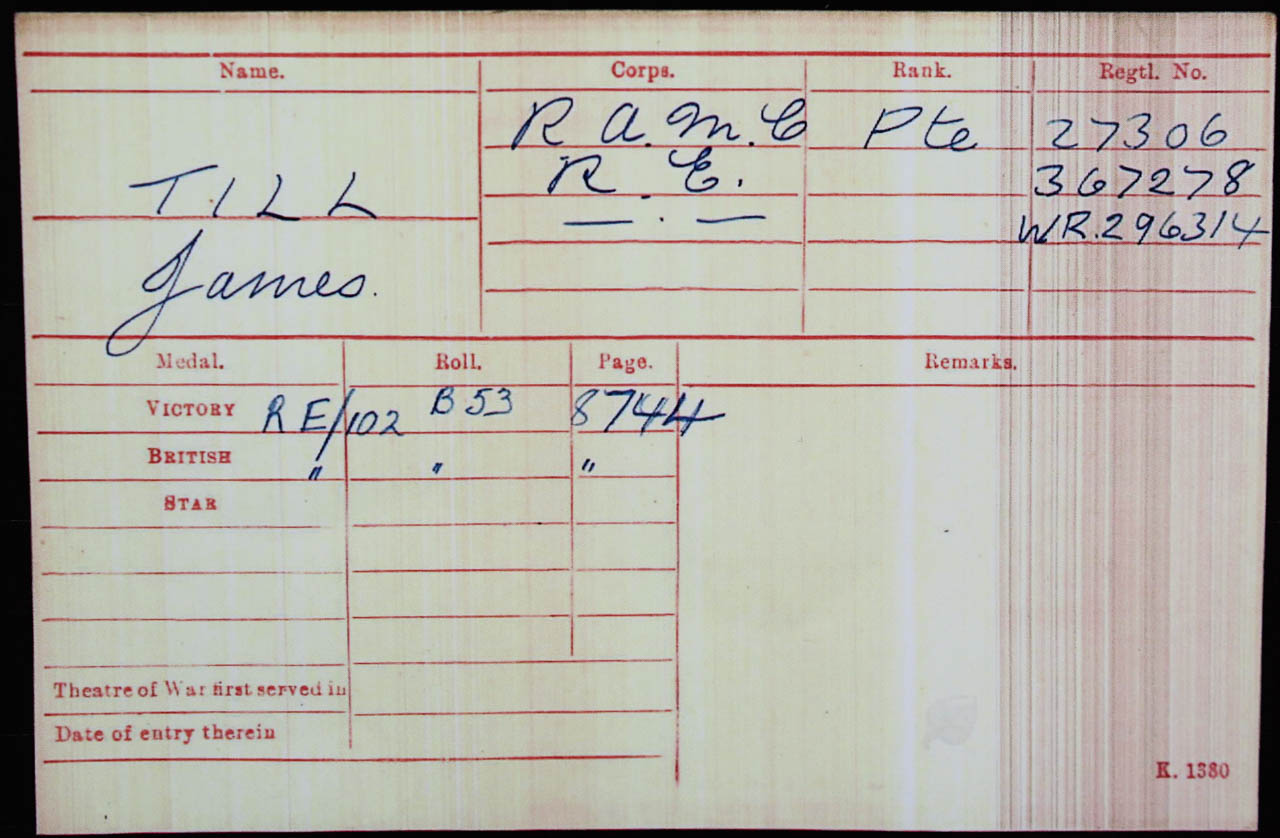 Name. Corps. Rank. Regtl. No.
R.A.M.C Pte 27306
TILL R.E. 367278
— . — WR.296314
James.
Medal. Roll. Page. Remarks.
VICTORY RE/102 B53 8744
BRITISH " " "
STAR
Theatre of War first served in
Date of entry therein
K. 1380